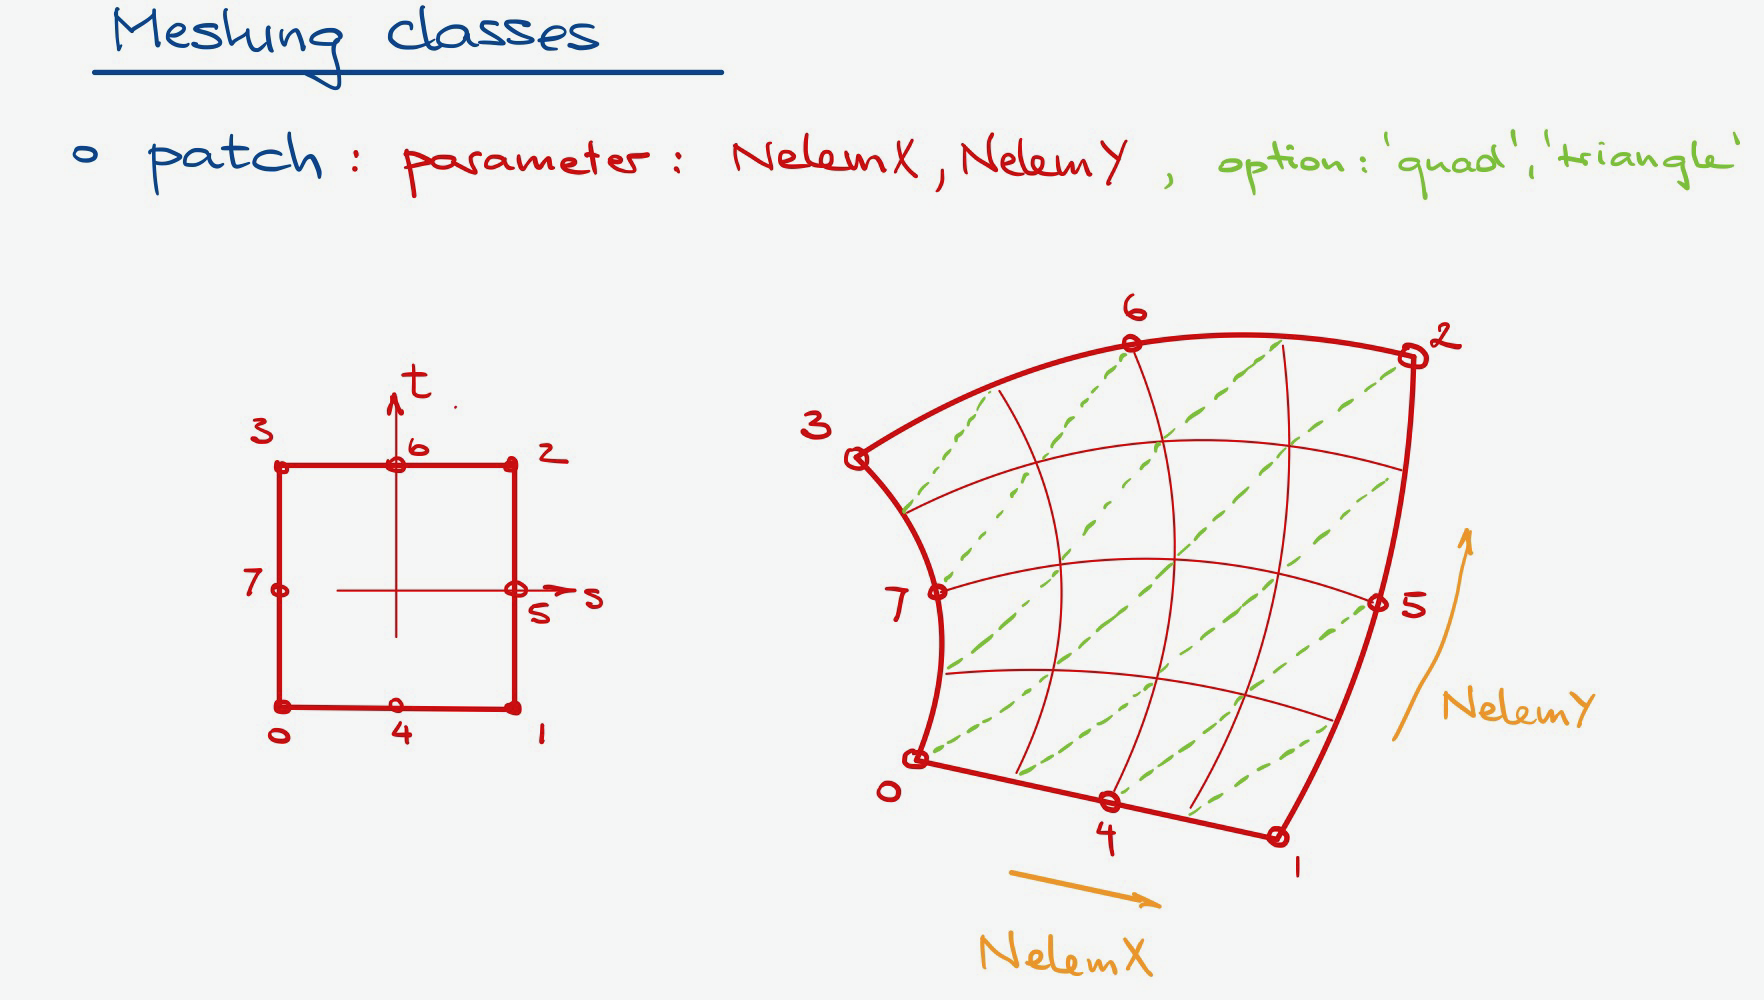 Meshing classes
o patch : parameter : NelemX, NelemY , option : 'quad', 'triangle'
6
2
t
3
6
2
3
7
5
s
7
5
NelemY
0
4
1
0
4
1
NelemX